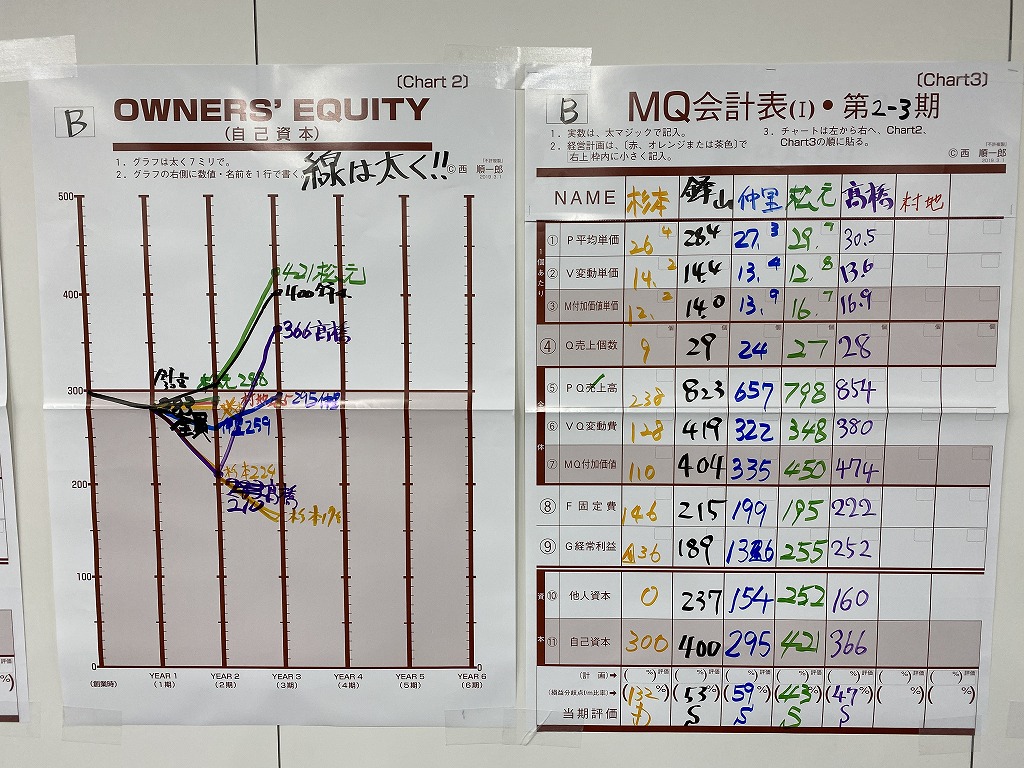 〔Chart 2〕
B
OWNERS' EQUITY
(自己資本)
1. グラフは太く7ミリで。
2. グラフの右側に数値・名前を1行で書く。
線は太く!!
© 西 順一郎
2019.3.1
500
400
300
200
100
0
0
421松元
400鉾山
366高橋
松元298
295仲里
仲里259
全員
杉本224
高橋
210
(創業時)
YEAR 1
(1期)
YEAR 2
(2期)
YEAR 3
(3期)
YEAR 4
(4期)
YEAR 5
(5期)
YEAR 6
(6期)
〔Chart3〕
B
MQ会計表(I)・第2-3期
1. 実数は、太マジックで記入。
2. 経営計画は、〔赤、オレンジまたは茶色〕で
右上 枠内に小さく記入。
3. チャートは左から右へ、Chart2、
Chart3の順に貼る。
© 西 順一郎
2019.3.1
NAME 杉本 鉾山 仲里 松元 高橋 村地
1個あたり
① P平均単価 26.4 28.4 27.3 29.7 30.5
② V変動単価 14.2 14.4 13.4 12.8 13.6
③ M付加価値単価 12.2 14.0 13.9 16.7 16.9
④ Q売上個数 9 29 24 27 28
全体
⑤ PQ売上高 238 823 657 798 854
⑥ VQ変動費 128 419 322 348 380
⑦ MQ付加価値 110 404 335 450 474
⑧ F固定費 146 215 199 195 222
⑨ G経常利益 ▲36 189 136 255 252
資本
⑩ 他人資本 0 237 154 252 160
⑪ 自己資本 300 400 295 421 366
(計画)➡ ( %) 評価 ( %) 評価 ( %) 評価 ( %) 評価 ( %) 評価 ( %) 評価 ( %) 評価
(損益分岐点f/m比率)➡ (132%) (53%) (59%) (43%) (47%) ( %) ( %)
当期評価 S S S S